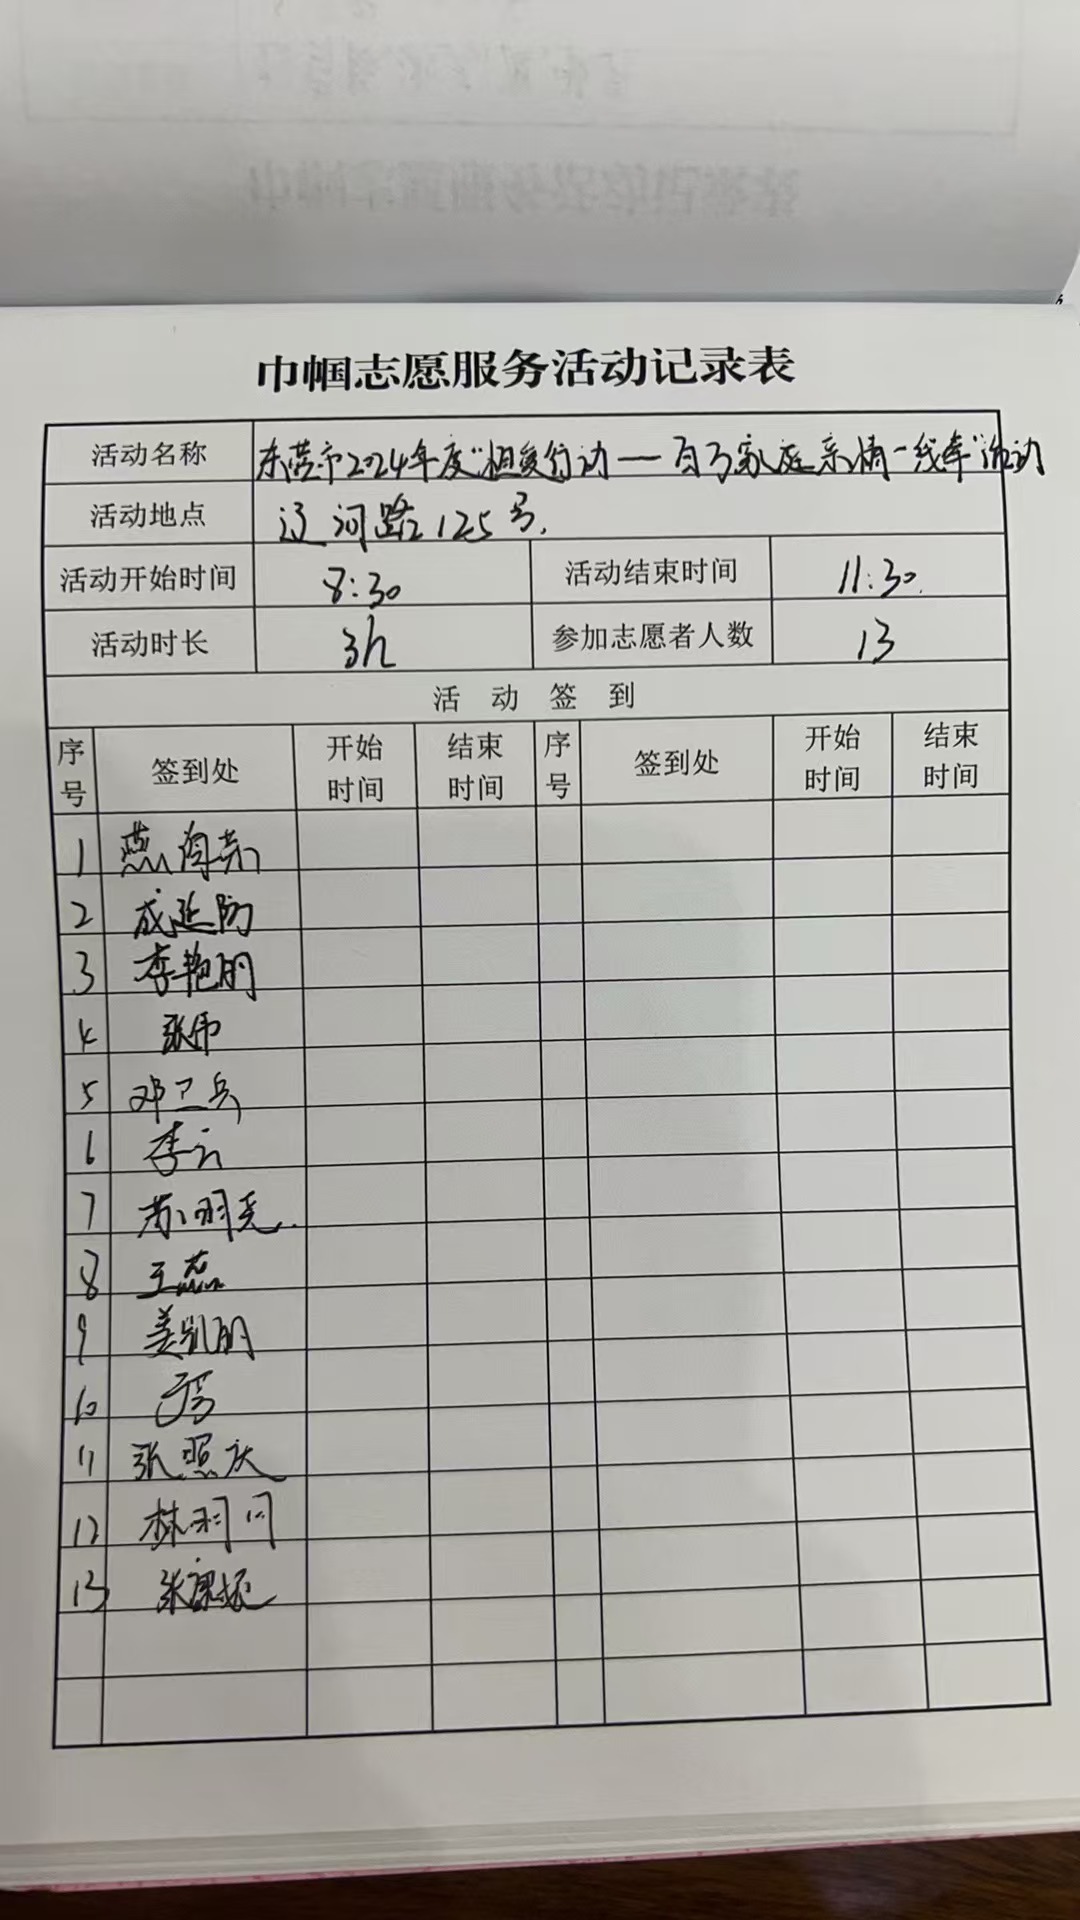 巾帼志愿服务活动记录表
活动名称 东营市2024年度"相爱行动——百万家庭亲情一线牵"活动
活动地点 辽河路125号.
活动开始时间 8:30 活动结束时间 11:30.
活动时长 3h 参加志愿者人数 13
活动签到
序号 签到处 开始时间 结束时间 序号 签到处 开始时间 结束时间
1 燕
2 成延
3 李艳丽
4 张伟
5 邓卫兵
6 李云
7 苏明亮
8 王磊
9 姜凯丽
10
11 张照庆
12 林
13 张